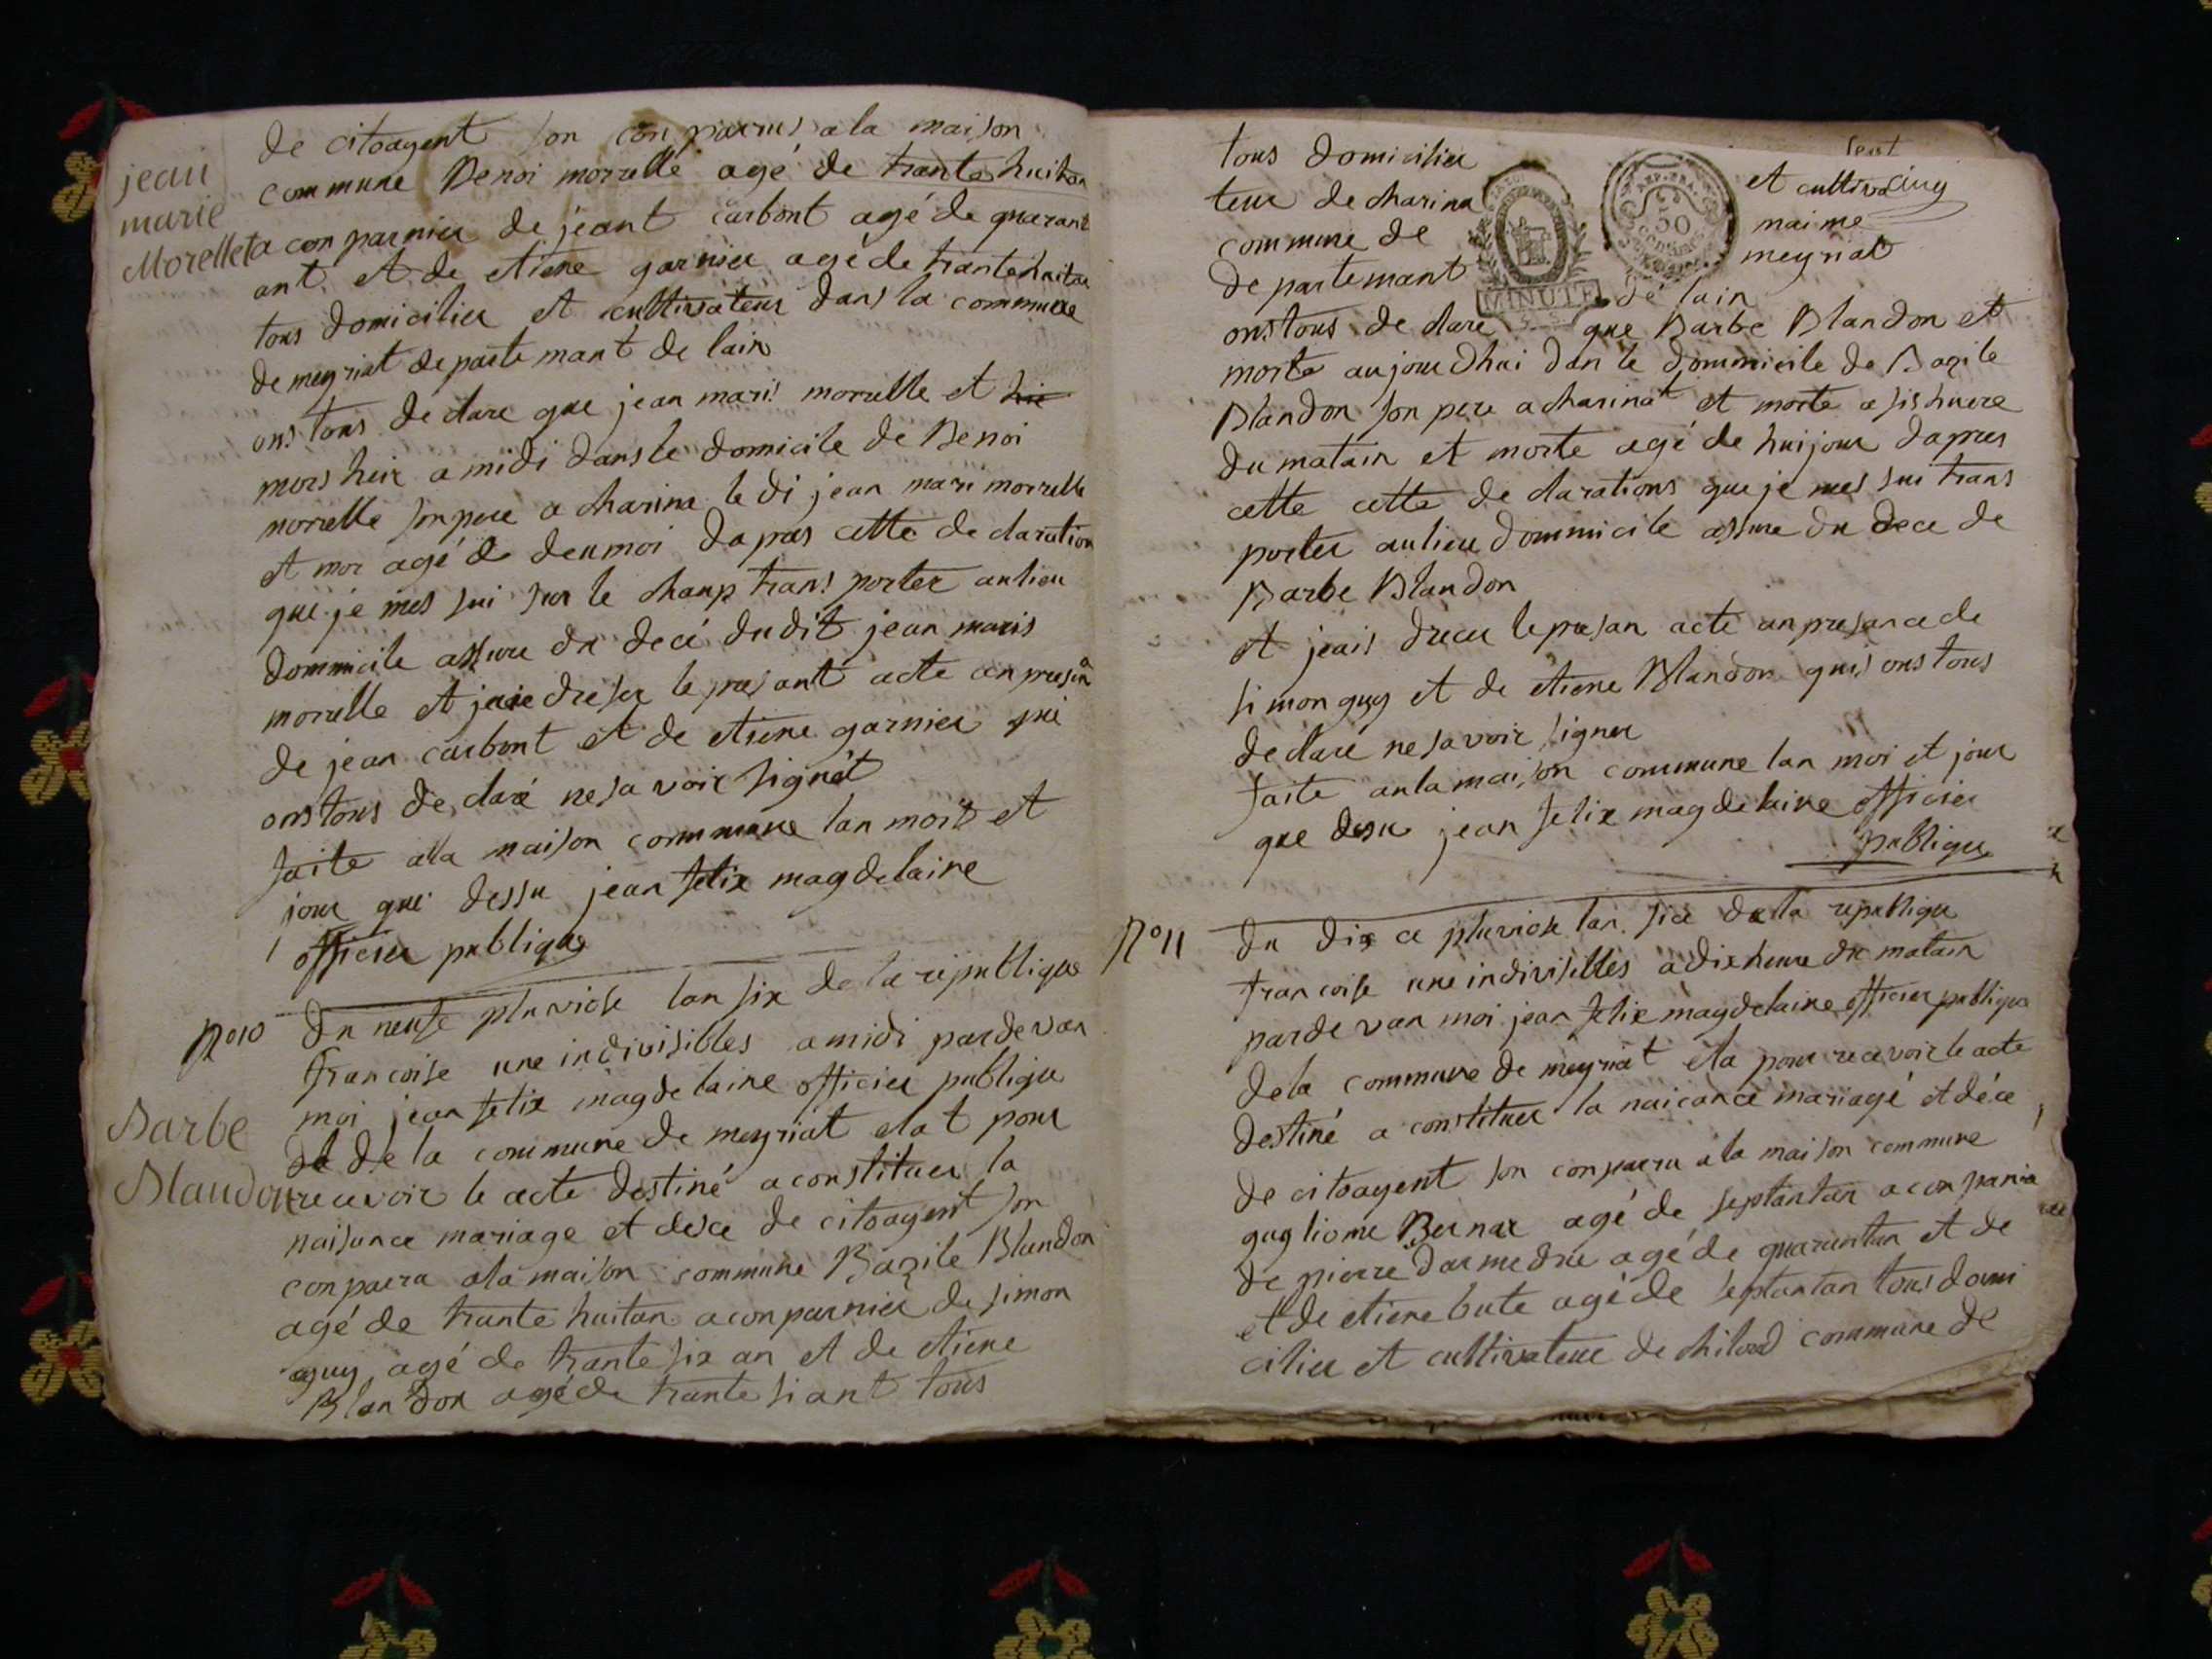 jean
marie
Morellet
de citoagent son conparus a la maison
commune Benoi morrelle agé de trante huit an
a conparnier de jeant carbont agé de quarant
ant et de etiene garnier agé de trante huit an
tous domicilier et cultivateur dans la commune
de meyriat departemant de lain
onstous de clare que jean maris morrelle et hie
mors heir a midi dans le domicile de Benoi
morrelle son pere a charina le di jean mari morrelle
et mor agé de deumoi dapres cette de claration
que je mes sui sur le chanp trans porter au lieu
dommicile assure du decé dudit jean maris
morrelle et jaie dreser le presant acte an presan
de jean carbont et de etiene garnier qui
onstous de claré ne sa voir signét
faite a la maison commune lan moit et
jour que dessu jean felix magdelaine
officier publique
n°10
Barbe
Blandon
du neufe pluviose lan six de la republique
francoise une indivisibles a midi pardevan
moi jean felix magdelaine officier publique
de de la commune de meyriat elat pour
recevoir le acte destiné a constituer la
naisance mariage et dece de citoagent son
conparra a la maison commune Bazile Blandon
agé de trante huitan aconparnier de simon
guy agé de trante six an et de etiene
Blandon agé de trante siant tous
sent
cinq
tous domicilier et cultiva
teur de charina maime
commune de meyriat
departemant de lain
onstous de clare que Barbe Blandon et
morte aujourdhui dan le dommicile de Bazile
Blandon son pere a charinat et morte a sis huere
du matain et morte agé de huijour dapres
cette cette de clarations que je mes sui trans
porter au lieu dommicile assure du dece de
Barbe Blandon
et jeais drecer le presan acte an presance de
simon guy et de etiene Blandon quis onstous
de claré ne savoir signer
faite an la maison commune lan moi et jour
que desu jean felix magdelaine officier
publique
n°11
du dix ce pluviose lan sice de la republique
francoise une indivisibles a dix heure du matain
par de van moi jean felix magdelaine officier publique
de la commune de meyriat ela pour recevoir le acte
destiné a constituer la naicance mariagé et déce
de citoagent son conparru a la maison commune
gugliome Bernar agé de septantan a conparnie
de pierre darmedrie agé de quarantan et de
et de etiene bute agé de septantan tous domi
cilier et cultivateur de chiloud commune de
REP. FRA.
50
CENTIMES
MINUTE